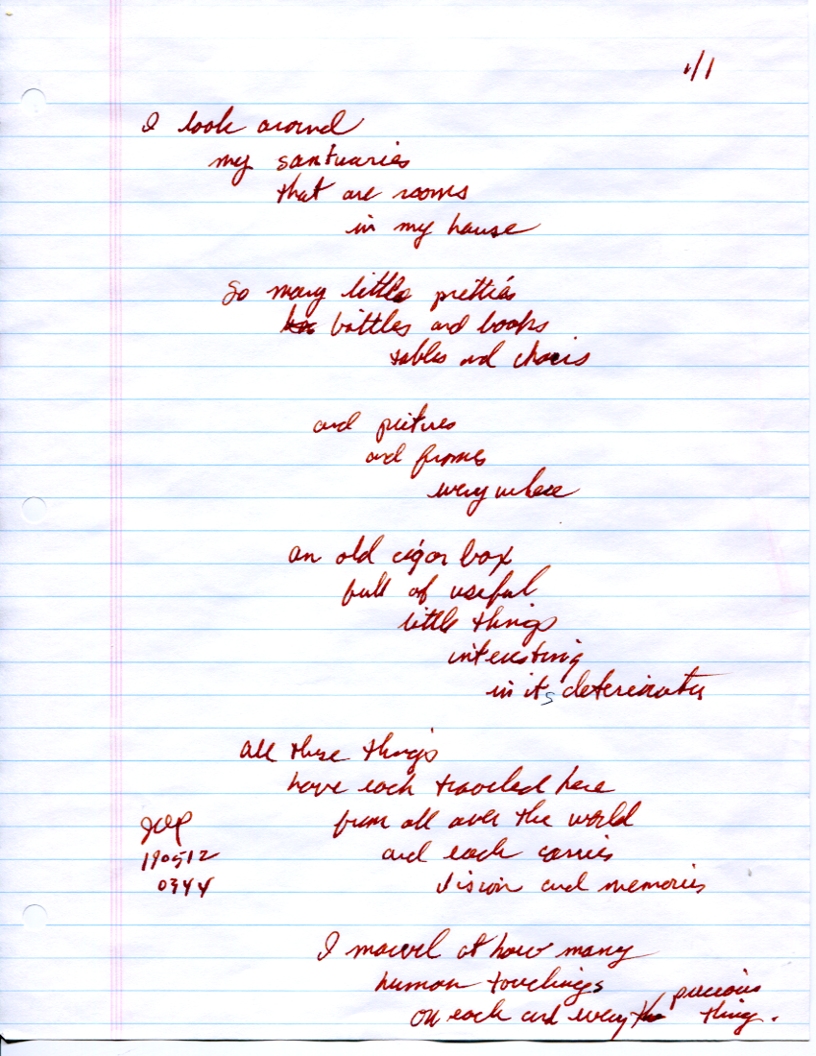 1/1
I look around
my santuaries
that are rooms
in my house
So many little pretties
bottles and books
tables and chairs
and pictures
and frames
everywhere
an old cigar box
full of useful
little things
interesting
in its
all these things
have each traveled here
from all over the world
and each carries
vision and memories
190512
0344
I marvel at how many
human touchings
on each and every precious thing.